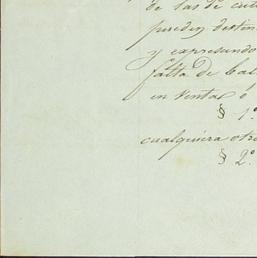 de las de cul
pueden destin
y expresando
falta de bas
en venta ó
§ 1º
cualquiera otro
§ 2º